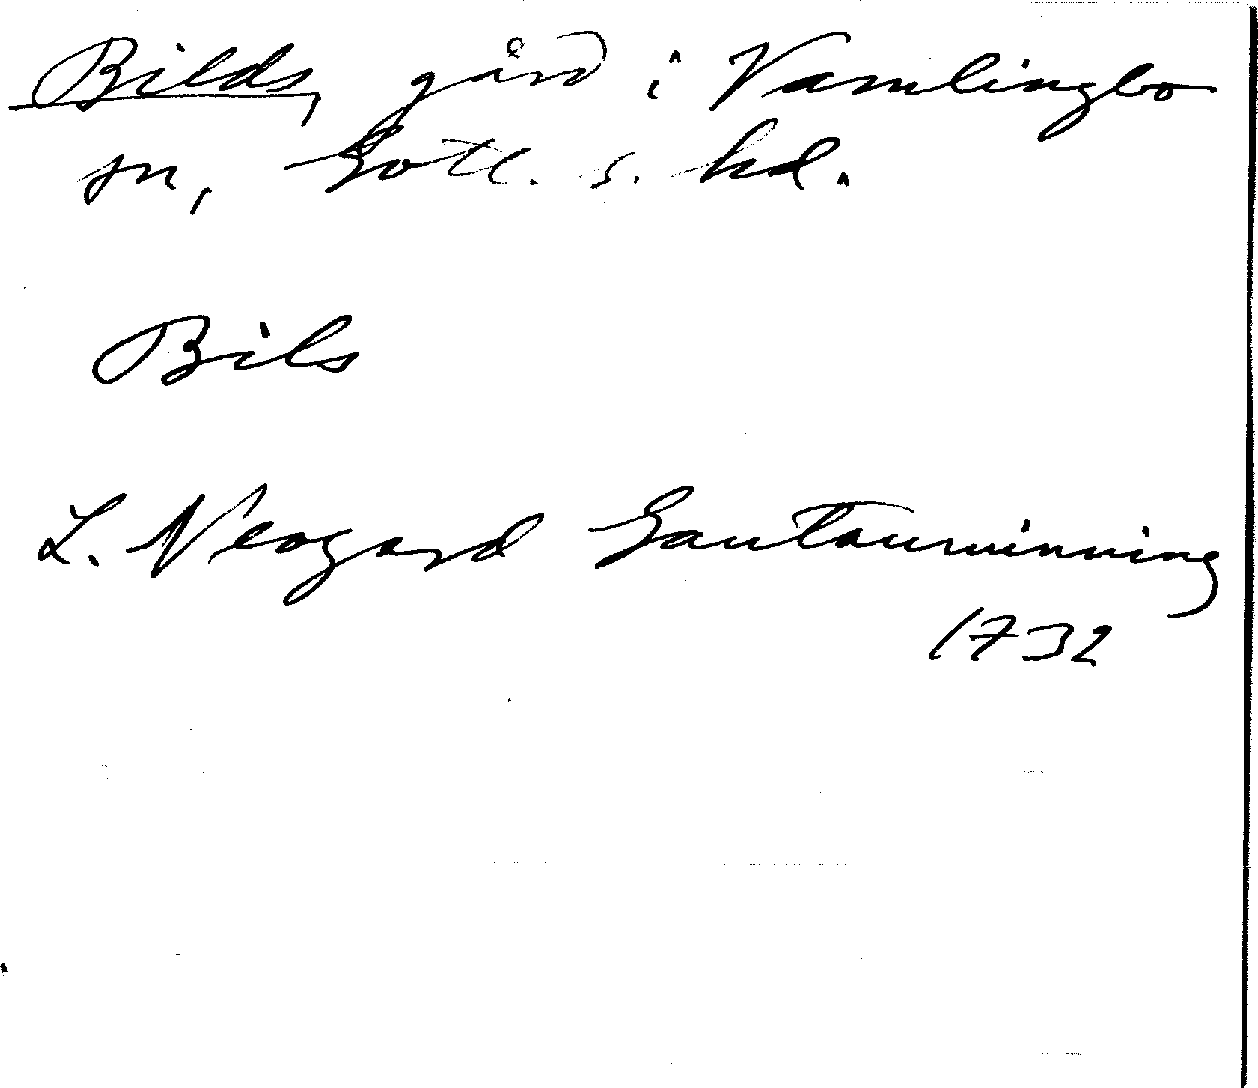 Bilds, gård i Vamlingbo
sn, Gotl. s. hd.
Bils
L. Neogard Gautauminning
1732